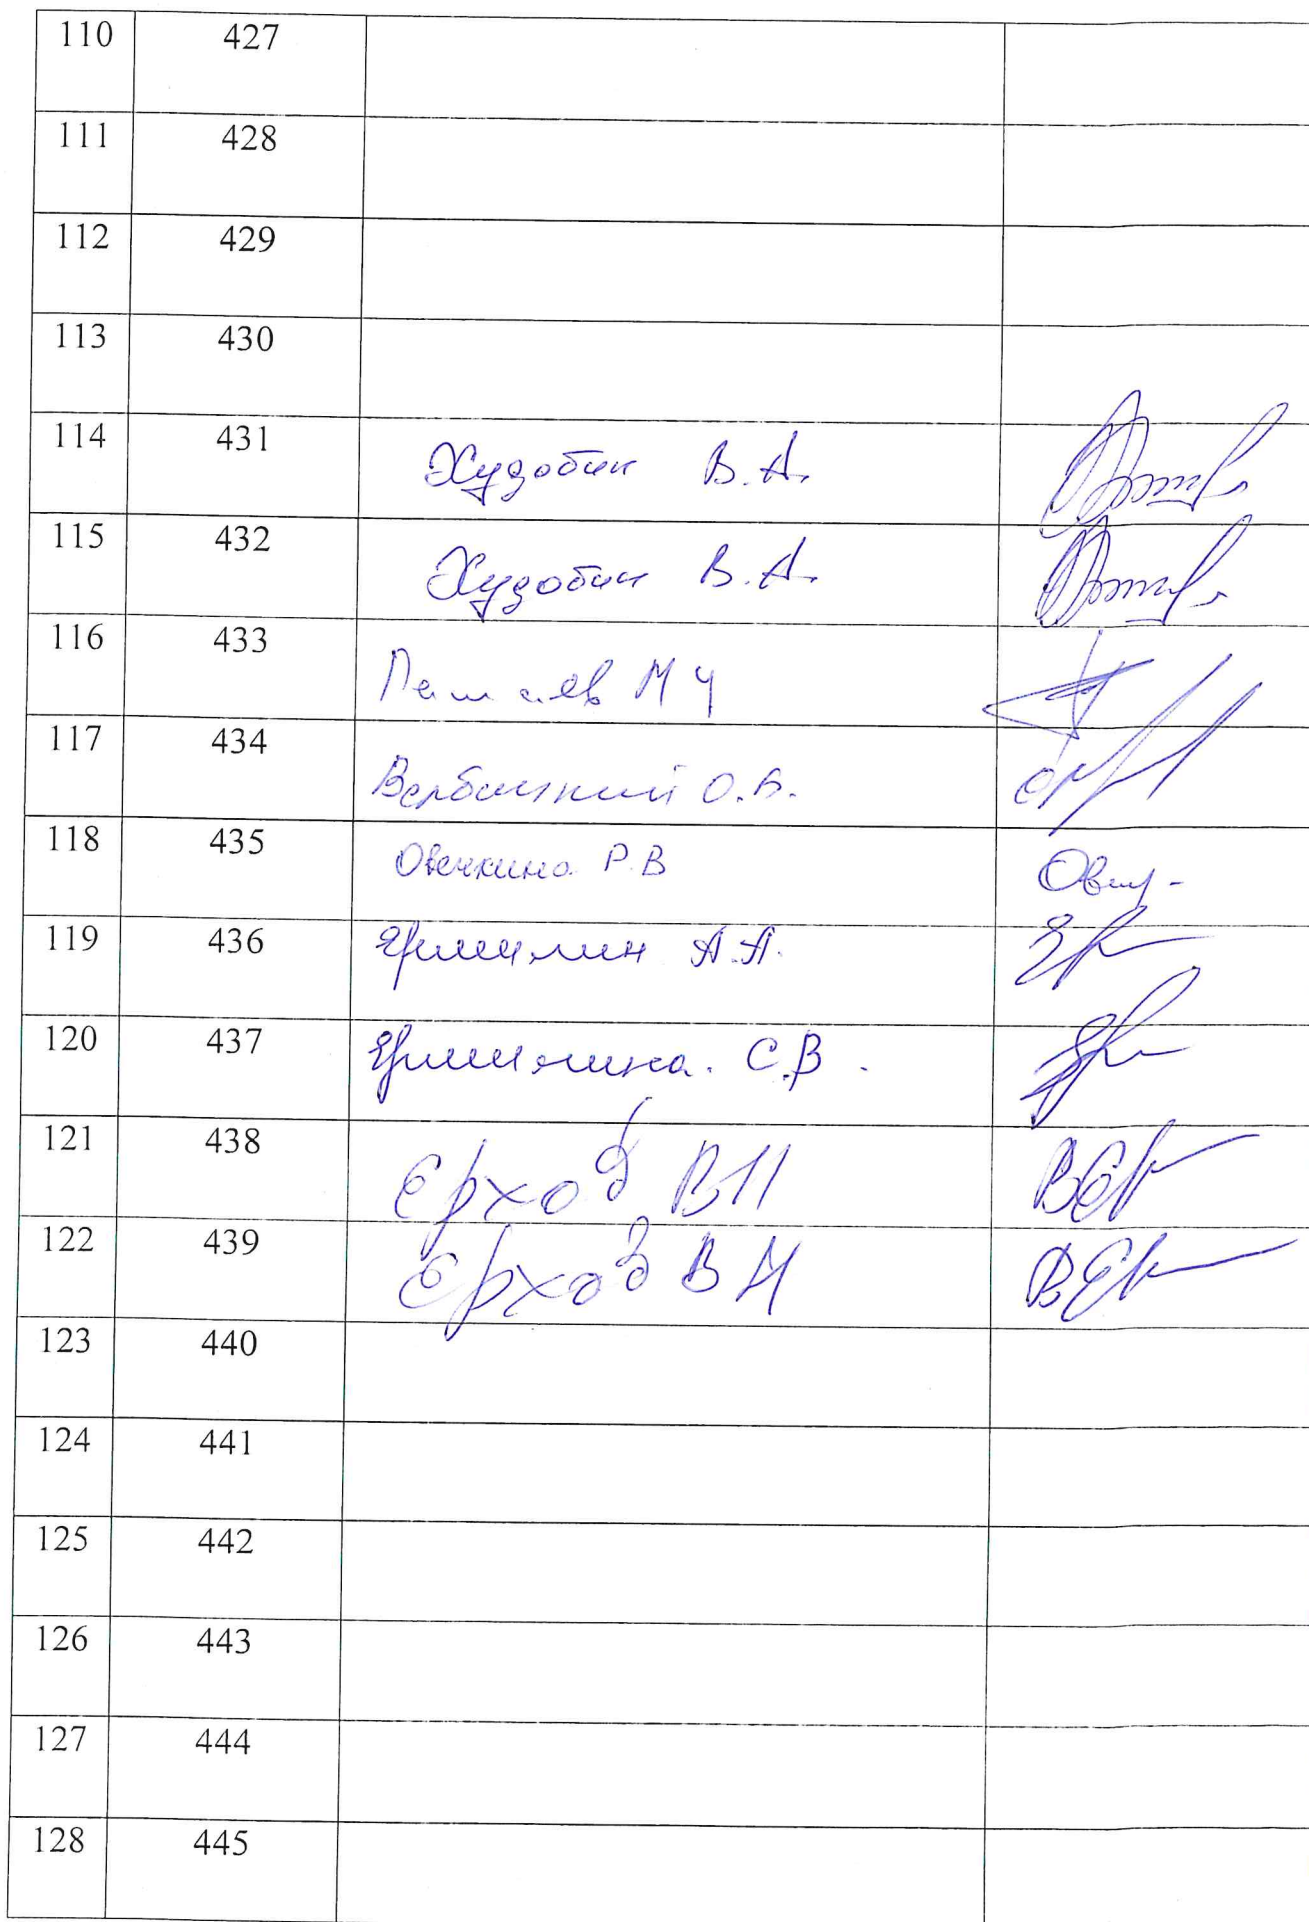 110 427
111 428
112 429
113 430
114 431 Худобин В.А.
115 432 Худобин В.А.
116 433
117 434 Вербицкий О.В.
118 435 Овечкина Р.В
119 436 А.А.
120 437 С.В.
121 438 Ерход В П
122 439 Ерход В Н
123 440
124 441
125 442
126 443
127 444
128 445